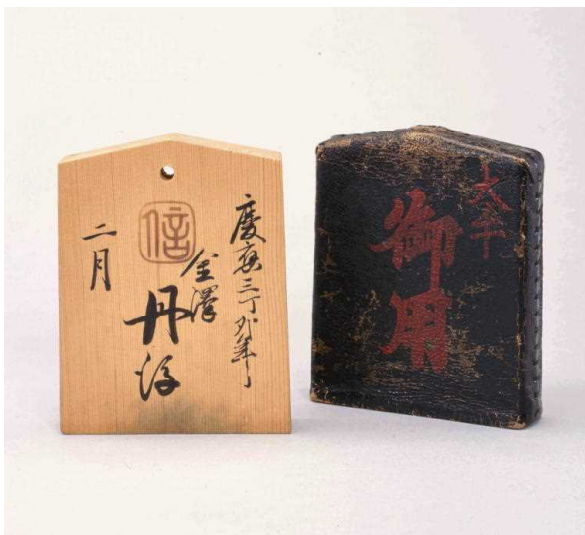 慶應三丁卯年
金澤
丹後
信
二月
大手
御用